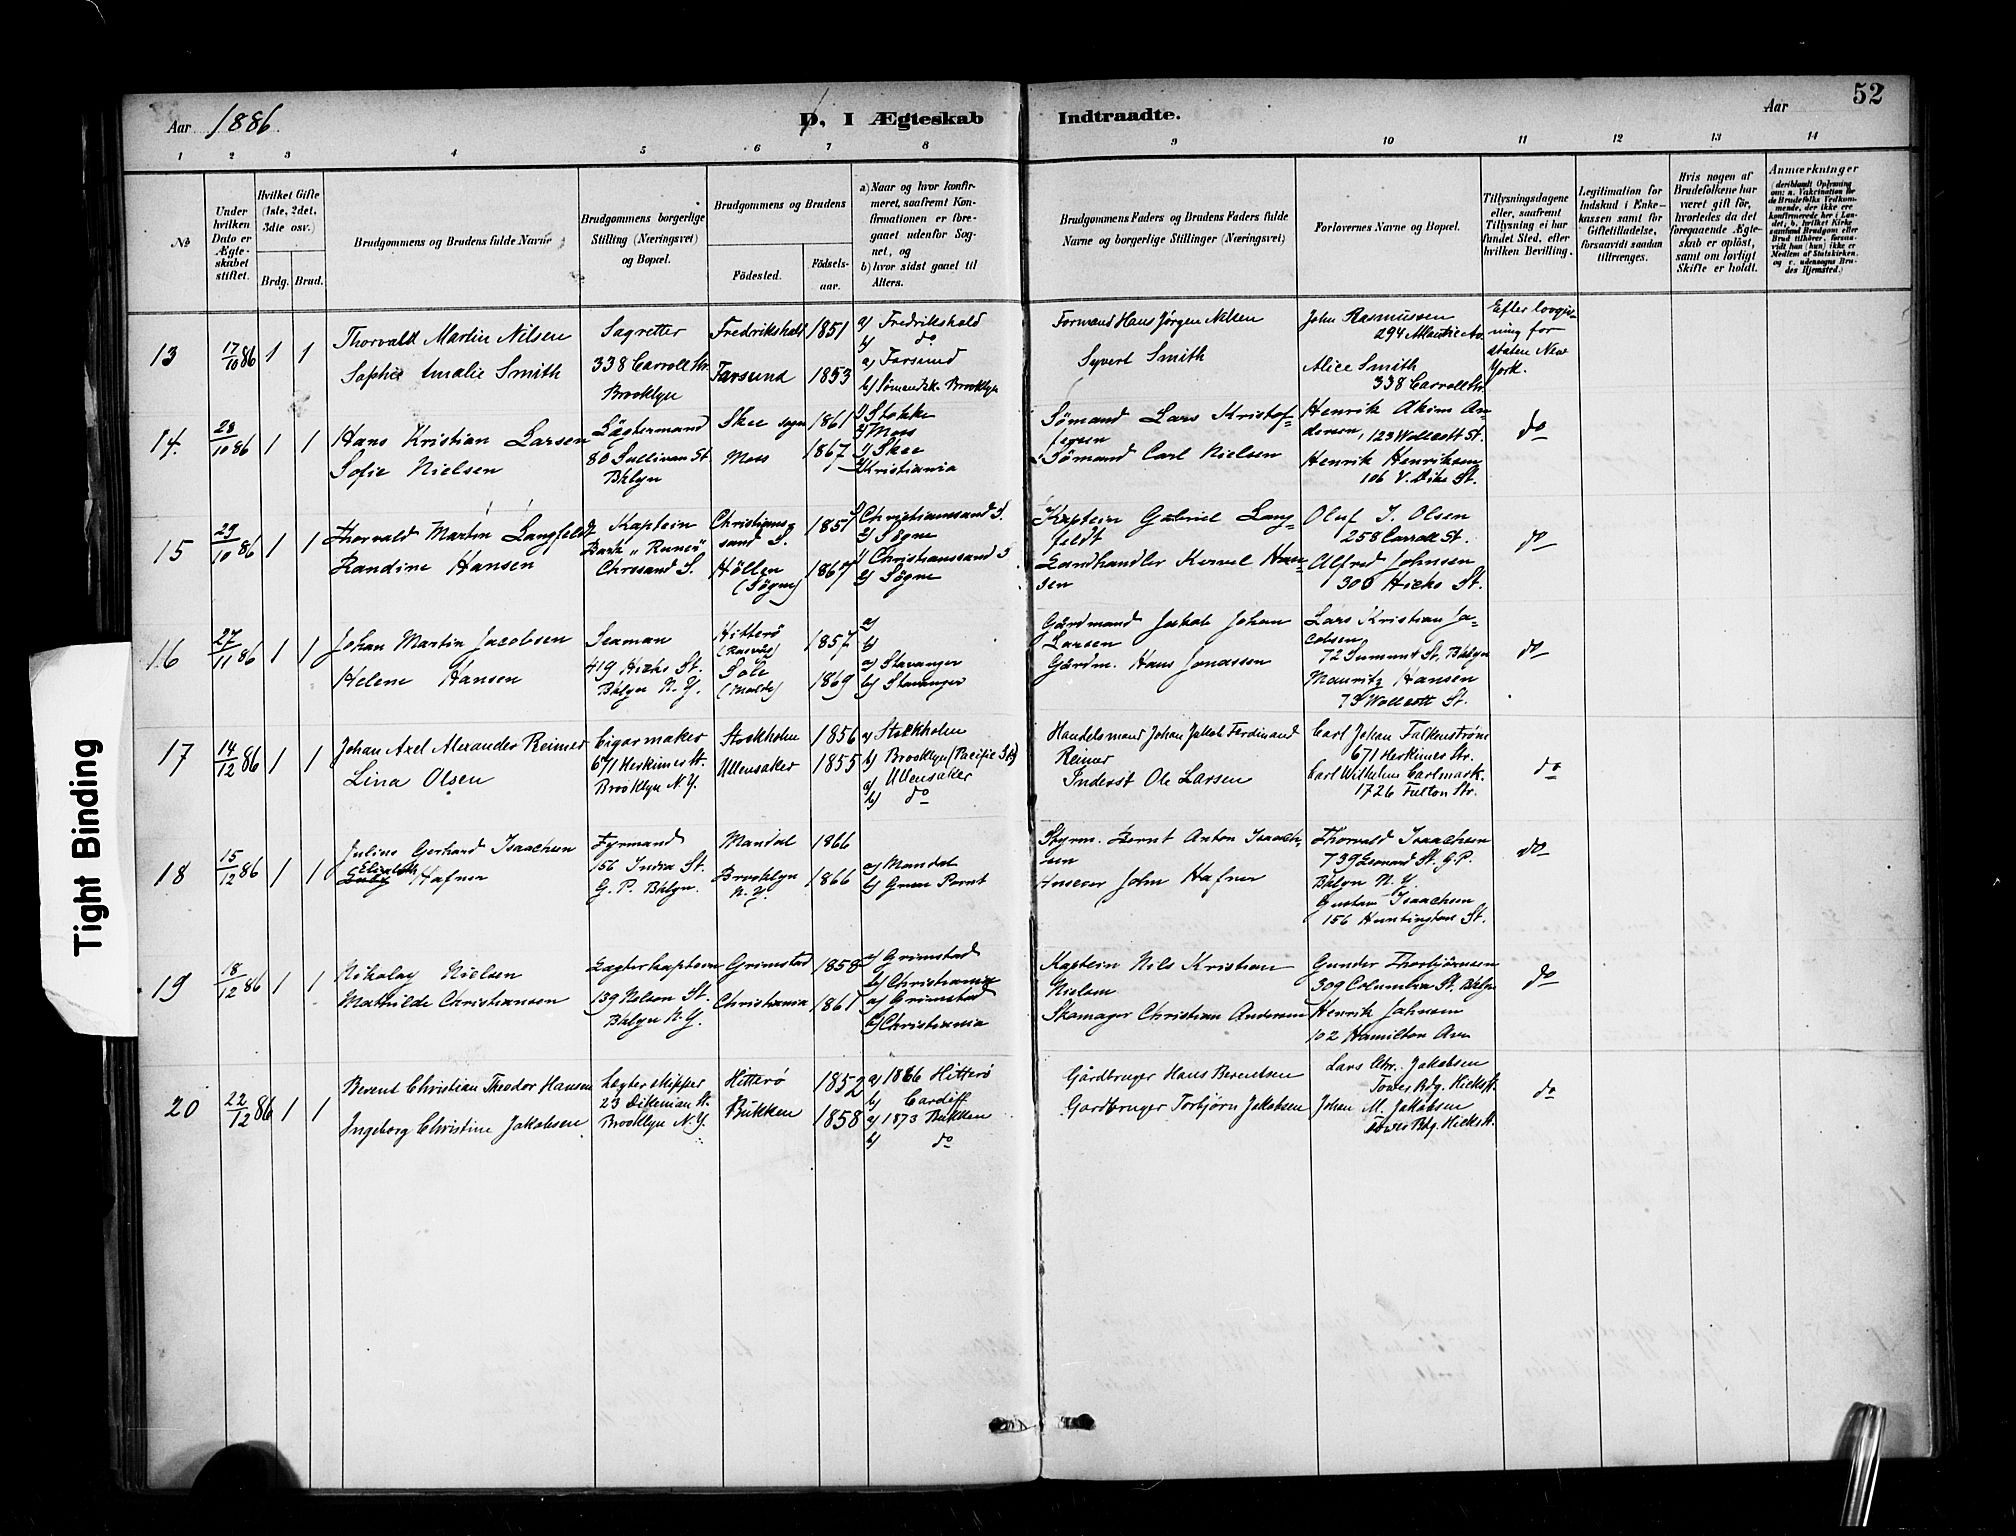 Aar 1886. D. I Ægteskab Indtraadte. Aar 52
1 2 3 4 5 6 7 8 9 10 11 12 13 14
No
Under hvilken Dato er Ægteskabet stiftet.
Hvilket Gifte (1ste, 2det, 3die osv.)
Brdg. Brud.
Brudgommens og Brudens fulde Navne
Brudgommens borgerlige Stilling (Næringsvei) og Bopæl.
Brudgommens og Brudens
Födested. Födselsaar.
a) Naar og hvor konfirmeret, saafremt Konfirmationen er foregaaet udenfor Sognet, og
b) hvor sidst gaaet til Alters.
Brudgommens Faders og Brudens Faders fulde Navne og borgerlige Stillinger (Næringsvei)
Forlovernes Navne og Bopæl.
Tillysningsdagene eller, saafremt Tillysning ei har fundet Sted, efter hvilken Bevilling.
Legitimation for Indskud i Enkekassen samt for Giftetilladelse, forsaavidt saadan tiltrænges.
Hvis nogen af Brudefolkene har været gift för, hvorledes da det foregaaende Ægteskab er oplöst, samt om lovligt Skifte er holdt.
Anmærkninger
13 17/10 86 1 1
Thorvald Martin Nilsen
Sophie Amalie Smith
338 Carroll Str.
Brooklyn
Fredrikshald 1851
Farsund 1853
a) Fredrikshald
b) do
a) Farsund
b) Sømandsk. Brooklyn
Formand Hans Jørgen Nilsen
Syvert Smith
John Rasmussen
294 Atlantic Av.
Alice Smith
338 Carroll Str.
Efter lovgivning for
staten New
York.
14. 23/10 86 1 1
Hans Kristian Larsen
Sofie Nielsen
80 Sullivan St
Bklyn
Skee sogn 1861
Moss 1867
Stokke
Moss
Skee
Kristiania
Sömand Lars Kristoffersen
Sömand Carl Nielsen
Henrik Akim Andersen, 123 Wollcott St.
Henrik Henriksen
106 V. Dike St.
do
15 29/10 86 1 1
Thorvald Martin Langfeldt
Randine Hansen
Kaptein
Chrssand S.
Christianssand S. 1857
Höllen
(Sögne) 1867
Christianssand S.
Sögne
Christianssand S
Sögne
Kaptein Gabriel Langfeldt
Landhandler Hansen
Oluf J. Olsen
258 Carroll St.
Alfred Johnsen
306 Hicks St.
do
16 27/11 86 1 1
Johan Martin Jacobsen
Helene Hansen
Seaman
419 Hicks St.
Bklyn N.Y.
Hitterö
1857
1869
a)
b)
a) Stavanger
b) Stavanger
Gårdmand Jakob Johan
Larsen
Gårdm. Hans Jonassen
Lars Kristian Jacobsen
72 Summit St, Bklyn
Mauritz Hansen
73 Wollcott St.
do
17 14/12 86 1 1
Johan Axel Alexander Reimer
Lina Olsen
Cigarmaker
671 Herkimer St.
Brooklyn N.Y.
Stockholm 1856
Ullensaker 1855
a) Stockholm
b) Brooklyn (Pacific St)
a) Ullensaker
b) do
Handelsmand Johan Jakob Ferdinand
Reimer
Inderst Ole Larsen
Carl Johan Falkenstrøm
671 Herkimer Str.
Carl Wilhelm Carlmark.
1726 Fulton Str.
do
18 15/12 86 1 1
Julius Gerhard Isaachsen
Elisabeth
Hafner
Fyrmand
156 India St.
G. P. Bklyn.
Mandal 1866
Brooklyn
N.Y. 1866
a) Mandal
b) Green Point
Styrm. Bernt Anton Isaachsen
John Hafner
Thorvald Isaachsen
739 Leonard St. G.P.
Bklyn N.Y.
Gustav Isaachsen
156 Huntington St.
do
19 18/12 86 1 1
Nikolay Nielsen
Mathilde Christiansen
Lægterkaptein
139 Nelson St.
Bklyn N.Y.
Grimstad 1858
Christiania 1861
a) Grimstad
b) Christiania
a) Grimstad
b) Christiania
Kaptein Nils Kristian
Nielsen
Skomager Christian Andersen
Gunder Thorbjørnsen
309 Columbia St. Bklyn
Henrik Johnsen
102 Hamilton Ave
do
20 22/12 86 1 1
Berent Christian Theodor Hansen
Ingeborg Christine Jakobsen
Lægterskipper
23 Dikeman St.
Brooklyn N.Y.
Hitterø 1852
Bukken 1858
a) 1866 Hitterø
b) Cardiff
a) 1873 Bukken
b) do
Gårdbruger Hans Berentsen
Gardbruger Torbjørn Jakobsen
Lars Chr. Jakobsen
Tower Bdg. Hicks St.
Johan M. Jakobsen
Tower Bdg. Hicks St.
do
Tight Binding